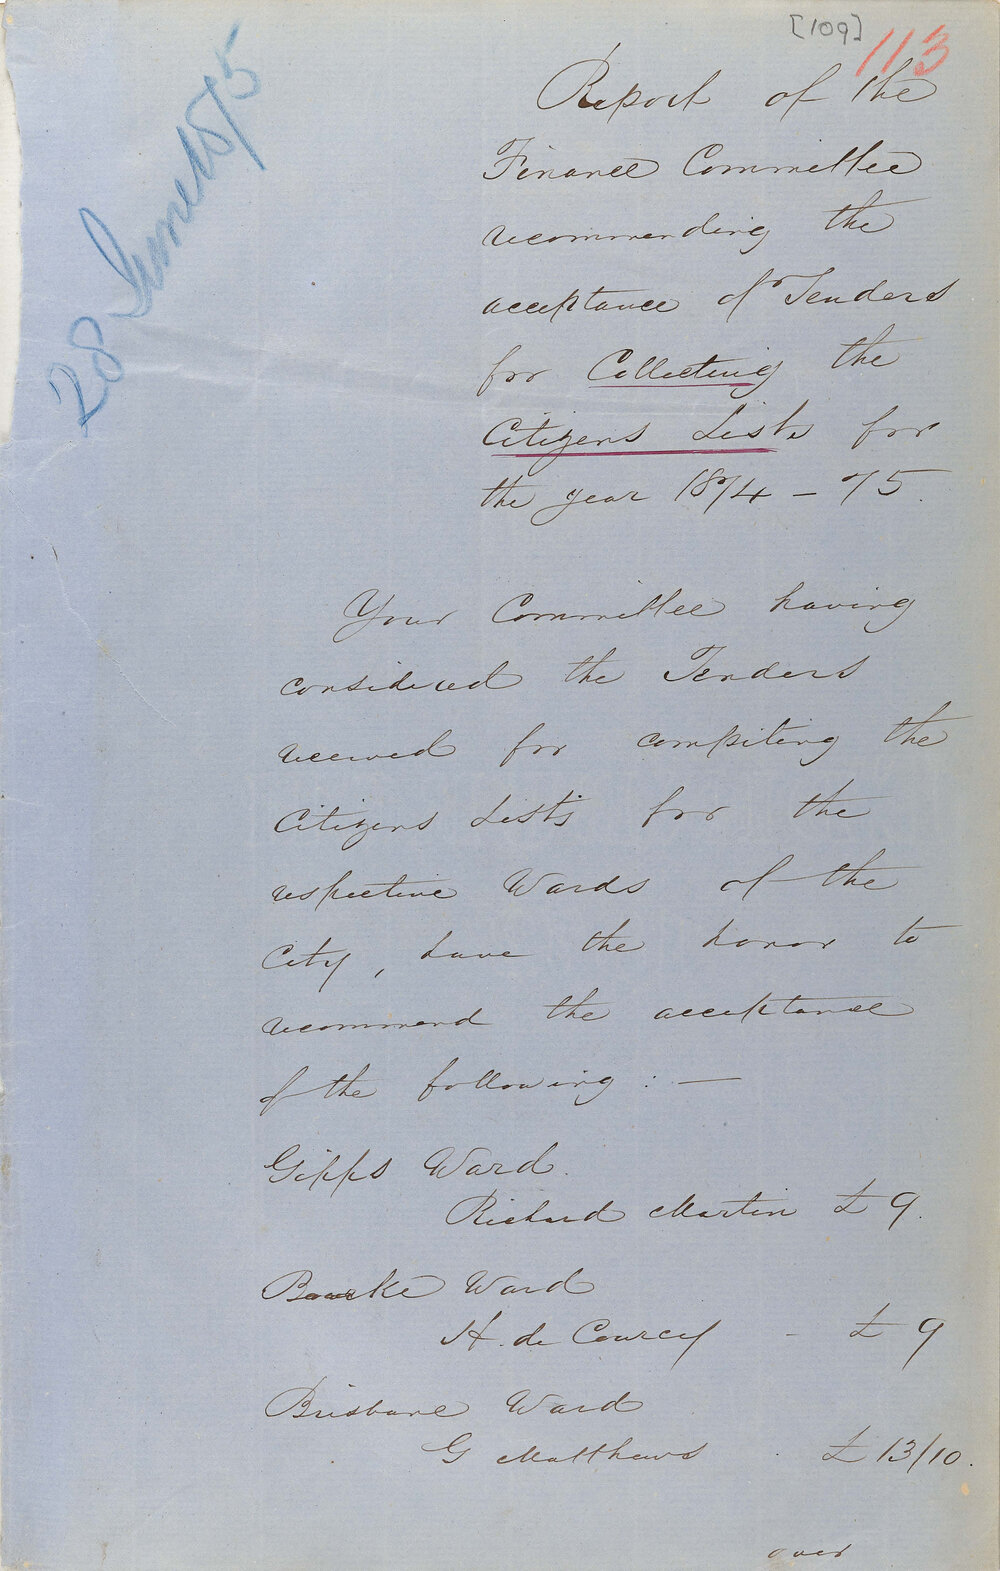 [109]
113
Report of the
Finance Committee
recommending the
acceptance of Tenders
for Collecting the
Citizens Lists for
the year 1874 - 75.
28
Your Committee having
considered the Tenders
received for compiling the
Citizens Lists for the
respective Wards of the
City, have the honor to
recommend the acceptance
of the following : —
Gipps Ward.
Richard Martin £ 9.
Bourke Ward
H. de Courcy - £ 9
Brisbane Ward
G Matthews . £ 13/10.
over